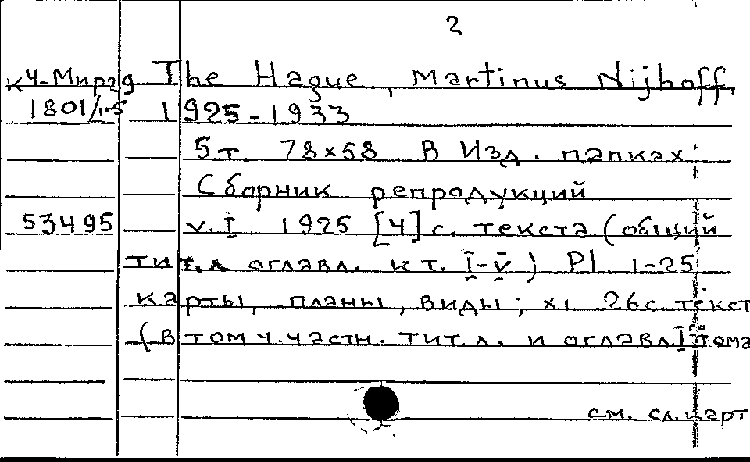 2
К4-Мира9 The Hague, Martinus Nijhoff,
1801/1-5 1925-1933
5т. 78×58 В Изд. папках
Сборник репродукций
53495 v.I 1925 [4] с. текста (общий
тит.л оглавл. к т. I-V) Pl 1-25
карты, планы, виды; XI 26с. текст
(в том ч. частн. тит. л. и оглавл I тома
см. сл.карт